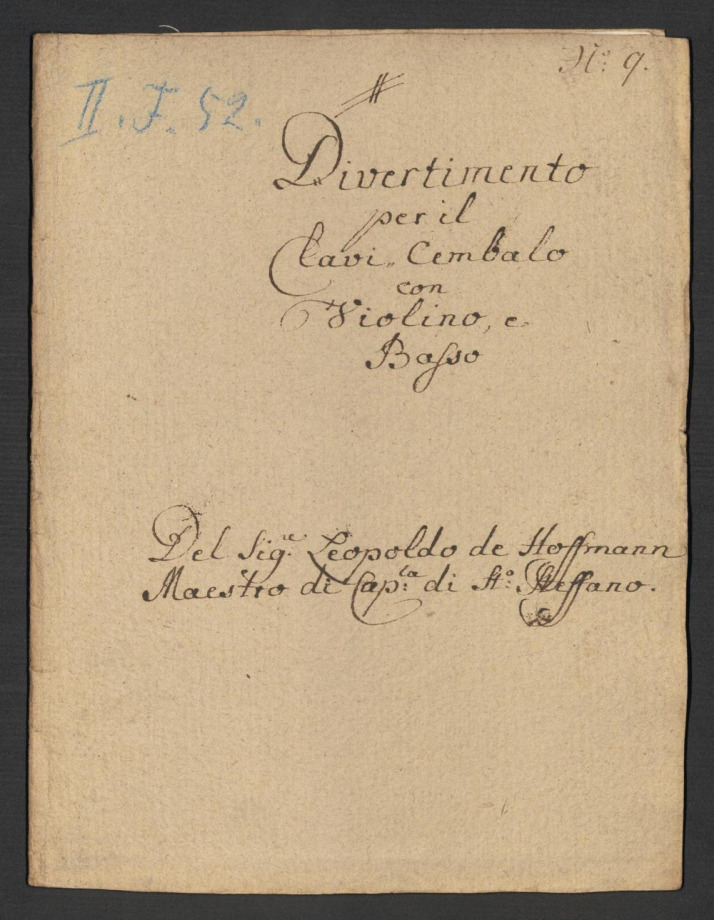 No: 9.
II. F. 52.
Divertimento
per il
Clavi„ Cembalo
con
Violino, e
Basso
Del Sig:re Leopoldo de Hoffmann
Maestro di Cap:la di St:o Steffano.